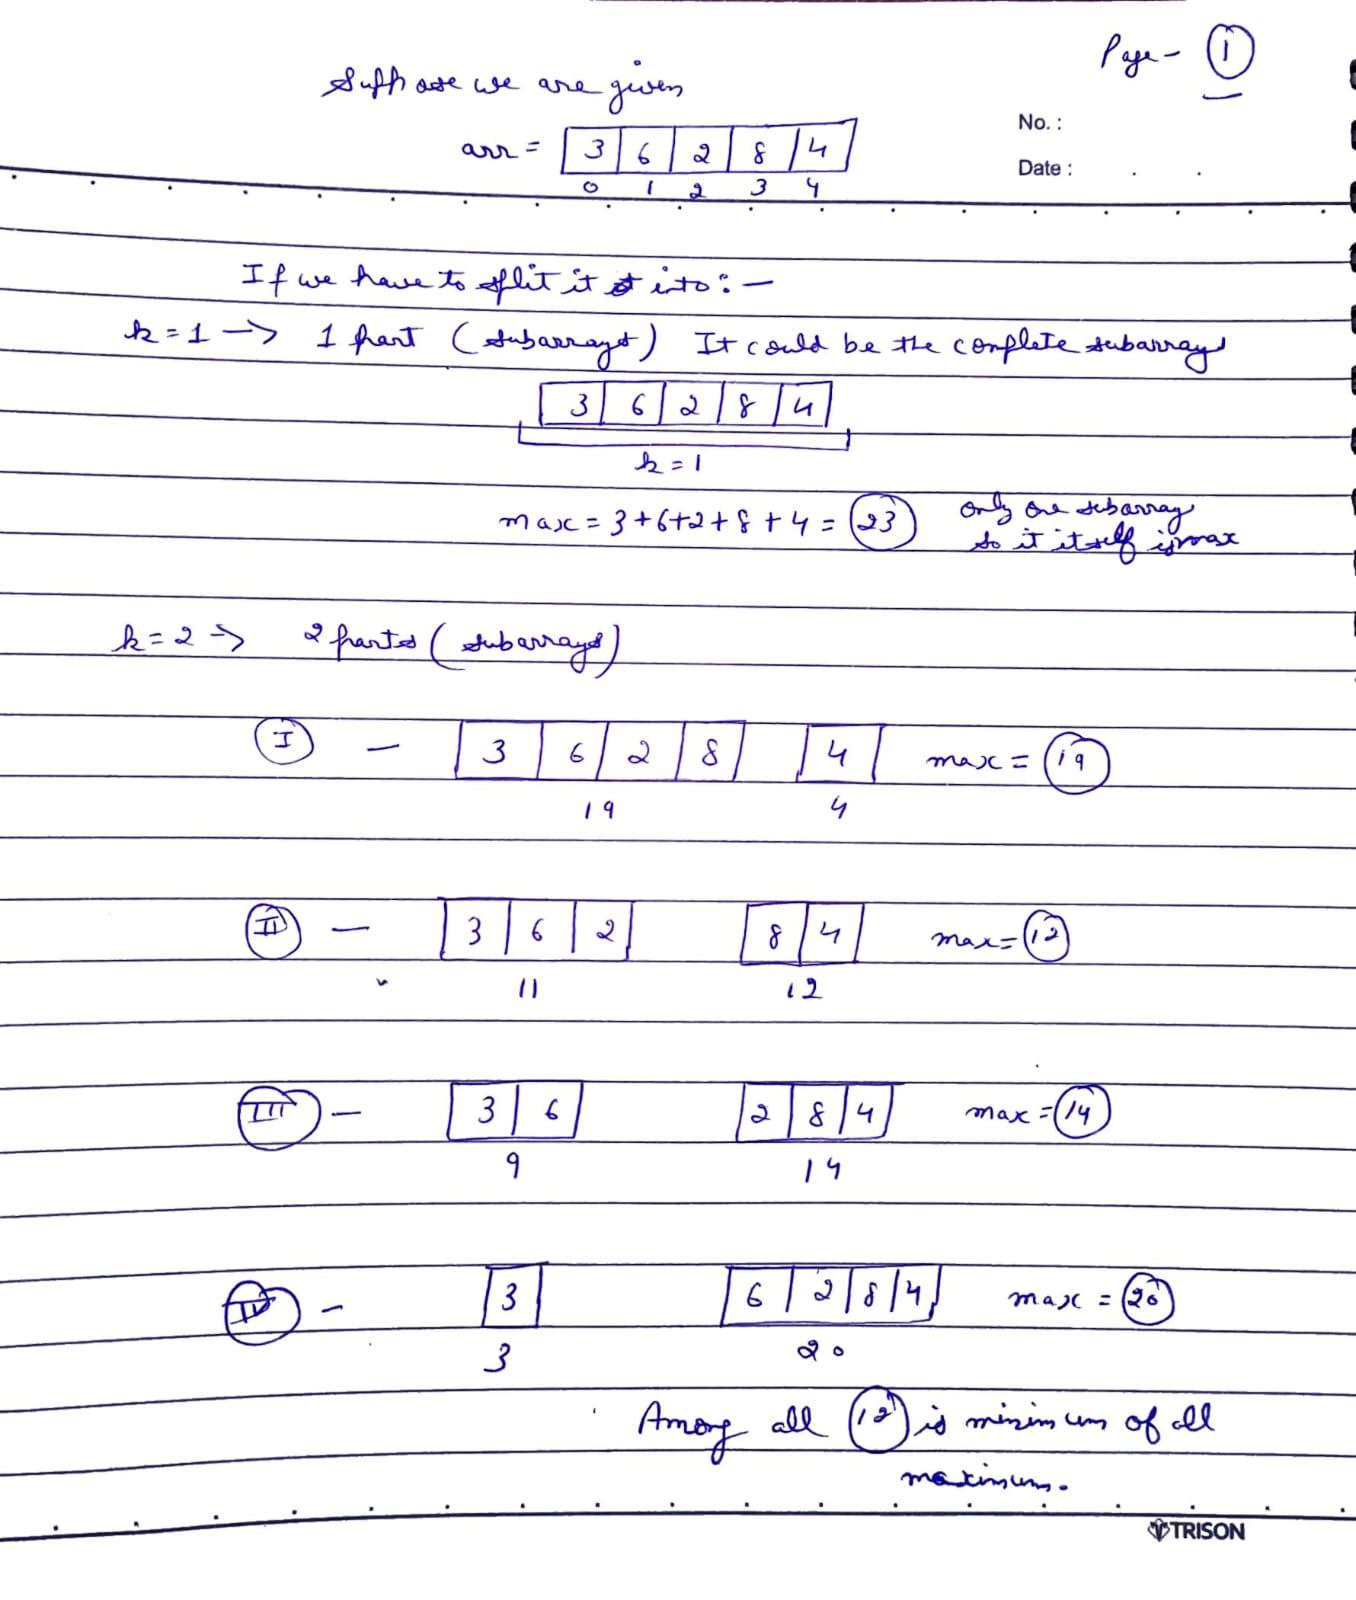 Page - 1
Suppose we are given
No. :
arr = 3 6 2 8 4
Date :
0 1 2 3 4
If we have to split it into :-
k = 1 -> 1 part (subarrays) It could be the complete subarrays
3 6 2 8 4
k = 1
max = 3+6+2+8+4 = 23 only one subarray
so it itself is max
k = 2 -> 2 parts (subarrays)
I - 3 6 2 8 4 max = 19
19 4
II - 3 6 2 8 4 max = 12
11 12
III - 3 6 2 8 4 max = 14
9 14
IV - 3 6 2 8 4 max = 20
3 20
Among all 12 is minimum of all
maximum.
TRISON